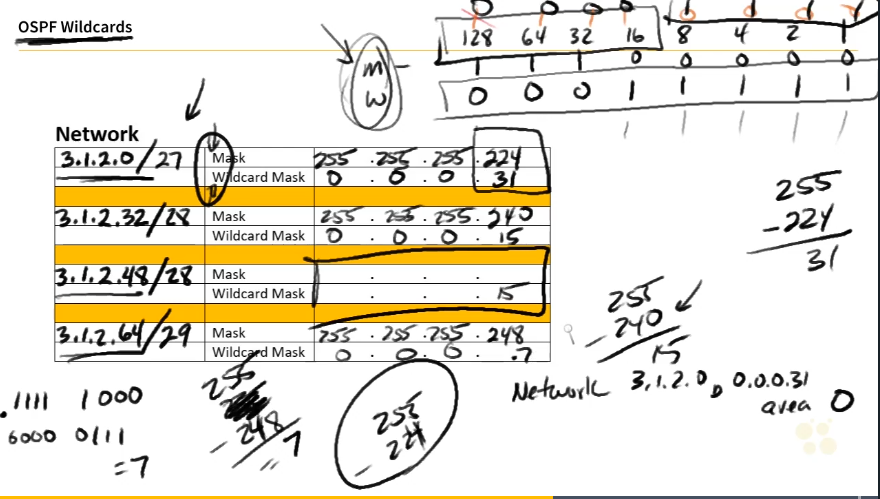 OSPF Wildcards
0 0 0 0
128 64 32 16 8 4 2 1
M 1 1 1 0 0 0 0 0
W 0 0 0 1 1 1 1 1
Network
3.1.2.0/27 Mask 255 .255 .255 .224
Wildcard Mask 0 . 0 . 0 . 31
3.1.2.32/28 Mask 255 . 255 . 255 . 240
Wildcard Mask 0 . 0 . 0 . 15
3.1.2.48/28 Mask . . .
Wildcard Mask . . . 15
3.1.2.64/29 Mask 255 . 255 .255 . 248
Wildcard Mask 0 . 0 . 0 .7
255
-224
31
255
-240
15
.1111 1000
0000 0111
=7
255
-248
7
255
-224
Network 3.1.2.0, 0.0.0.31
area 0